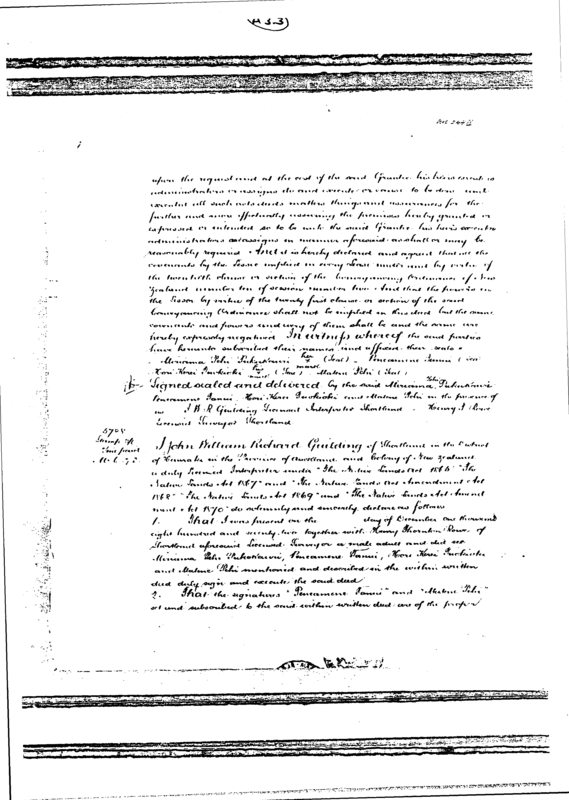 H 3.3
upon the request and at the cost of the said Grantee his heirs executors
administrators or assigns do and execute or cause to be done and
executed all such acts deeds matters things and assurances for the
further and more effectually assuring the premises hereby granted or
expressed or intended so to be unto the said Grantee his heirs executors
administrators or assigns in manner aforesaid as shall or may be
reasonably required And it is hereby declared and agreed that all the
covenants by the Lessee implied in every Lease under and by virtue of
the twentieth clause or section of the Conveyancing Ordinance of New
Zealand number ten of session number two And that the powers in
the Lessor by virtue of the twenty first clause or section of the said
Conveyancing Ordinance shall not be implied in this deed but the same
covenants and powers and every of them shall be and the same are
hereby expressly negatived In witness whereof the said parties
have hereunto subscribed their names and affixed their seals
her x mark (Seal)
Hori Kerei (Seal) Matene Pehi (Seal)
Signed sealed and delivered by the said
Hori Kerei and Matene Pehi in the presence of
J W R Guilding Licensed Interpreter Shortland Henry J Rowe
Licensed Surveyor Shortland
I John William Richard Guilding of Shortland in the District
of Hauraki in the Province of Auckland and Colony of New Zealand
a duly licensed Interpreter under "The Native Lands Act 1865" "The
Native Lands Act 1867" and "The Native Lands Act Amendment Act
1868" "The Native Lands Act 1869" and "The Native Lands Act Amend
ment Act 1870" do solemnly and sincerely declare as follows
1. That I was present on the day of December one thousand
eight hundred and seventy two together with Henry Rowe of
Shortland aforesaid Licensed Surveyor a male adult and did see
Hori Kerei
and Matene Pehi mentioned and described in the within written
deed duly sign and execute the said deed
2. That the signatures and "Matene Pehi"
set and subscribed to the said within written deed are of the proper